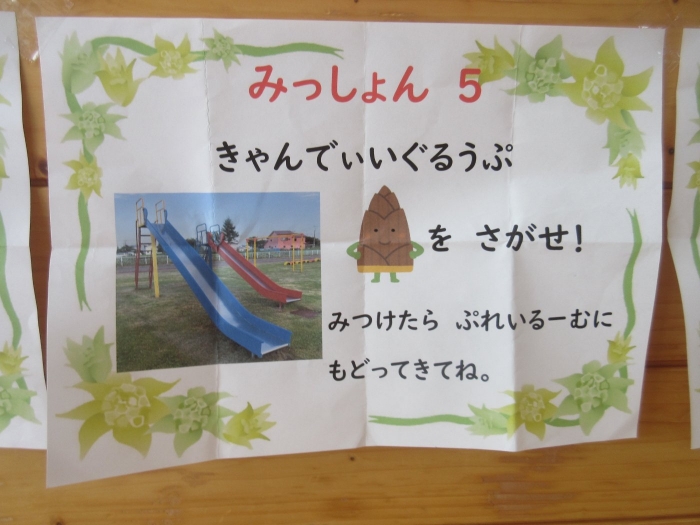 みっしょん 5
きゃんでぃいぐるうぷ
を さがせ!
みつけたら ぷれいるーむに
もどってきてね。